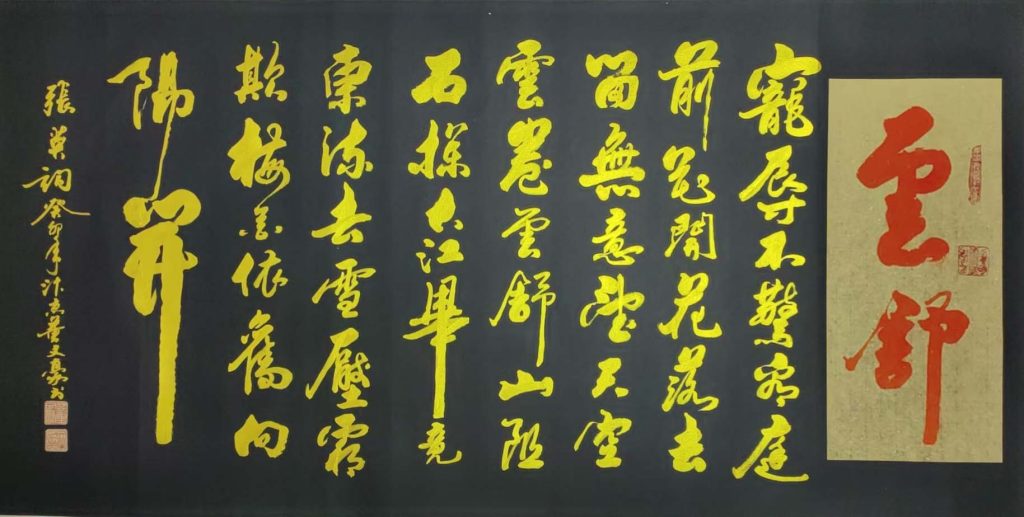 雲舒
寵辱不驚看庭
前花開花落去
留無意望天空
雲卷雲舒山阻
石大江畢竟
東流去雪壓霜
欺梅花依舊向
陽開
張詞癸卯年汴京董文豪書